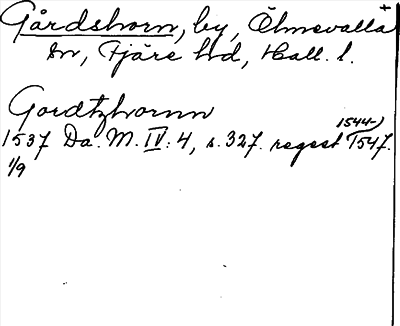 Gårdshorn, by, Ölmevalla +
sn, Fjäre hd, Hall. l.
Gordtzhornn
1537 Da. M. IV: 4, s. 327. regest 1544-1547.
1/9